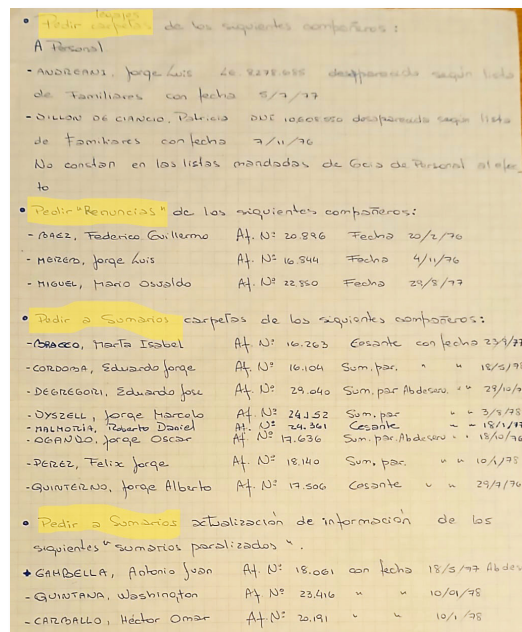 legajos
• Pedir carpetas de los siguientes compañeros:
A Personal
- ANDREANI, Jorge Luis LE. 8278.685 desaparecido según lista
de Familiares con fecha 5/7/77
- DILLON DE CIANCIO, Patricia DNI 10.608.550 desaparecida según lista
de Familiares con fecha 7/11/76
No constan en las listas mandadas de Gcia de Personal al efec
to
• Pedir "Renuncias" de los siguientes compañeros:
- BAEZ, Federico Guillermo Af. Nº 20.896 Fecha 20/2/76
- MERERO, Jorge Luis Af. Nº 16.544 Fecha 4/11/76
- MIGUEL, Mario Osvaldo Af. Nº 22.850 Fecha 29/8/77
• Pedir a Sumarios carpetas de los siguientes compañeros:
- BRACCO, Marta Isabel Af. Nº 16.263 Cesante con fecha 23/9/77
- CORDOBA, Eduardo Jorge Af. Nº 16.104 Sum. par. " " 18/5/78
- DEGREGORI, Eduardo Jose Af. Nº 29.040 Sum. par Abdeserv. " " 29/10/7
- DYSZELL, Jorge Marcelo Af. Nº 24.152 Sum. par " " 3/8/78
- MALMORIA, Roberto Daniel Af. Nº 24.361 Cesante " " 18/1/77
- OGANDO, Jorge Oscar Af. Nº 17.636 Sum. par. Abdeserv " " 18/10/76
- PEREZ, Felix Jorge Af. Nº 18.140 Sum. par. " " 10/1/78
- QUINTEIRNO, Jorge Alberto Af. Nº 17.506 Cesante " " 29/7/76
• Pedir a Sumarios actualización de información de los
siguientes "sumarios paralizados".
+ GAMBELLA, Antonio Juan Af. Nº 18.061 con fecha 18/5/77 Abdes
- QUINTANA, Washington Af Nº 23.416 " " 10/01/78
- CARBALLO, Héctor Omar Af. Nº 20.191 " " 10/1/78